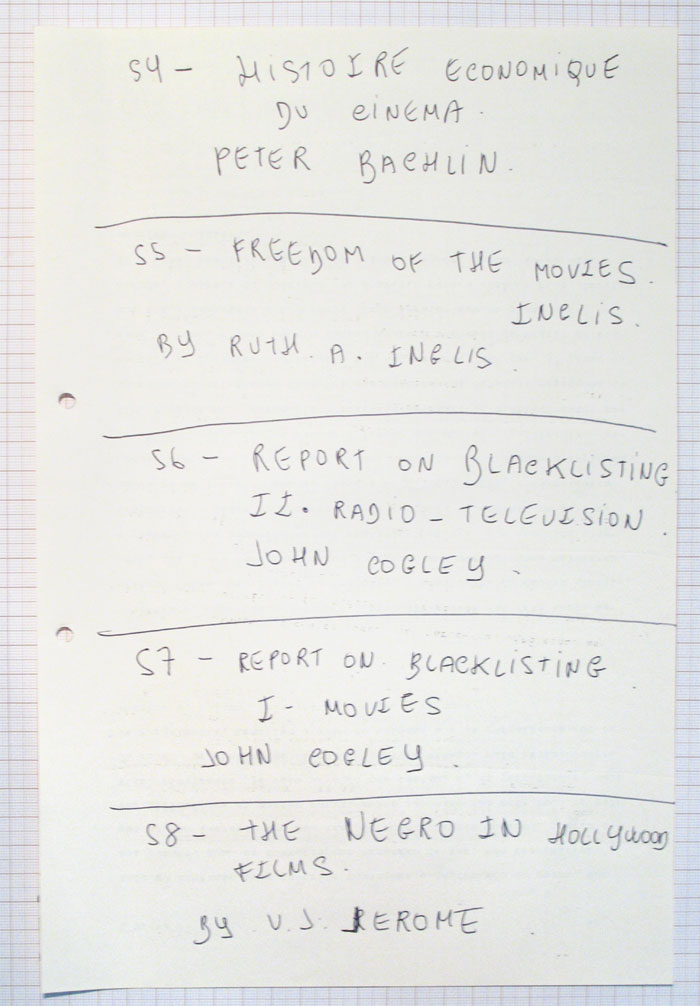 S4 - HISTOIRE ECONOMIQUE
DU CINEMA.
PETER BAEHLIN.
S5 - FREEDOM OF THE MOVIES.
INGLIS.
BY RUTH. A. INGLIS.
S6 - REPORT ON BLACKLISTING
II. RADIO - TELEVISION.
JOHN COGLEY.
S7 - REPORT ON BLACKLISTING
I - MOVIES
JOHN COGLEY.
S8 - THE NEGRO IN HOLLYWOOD
FILMS.
BY V.J. JEROME